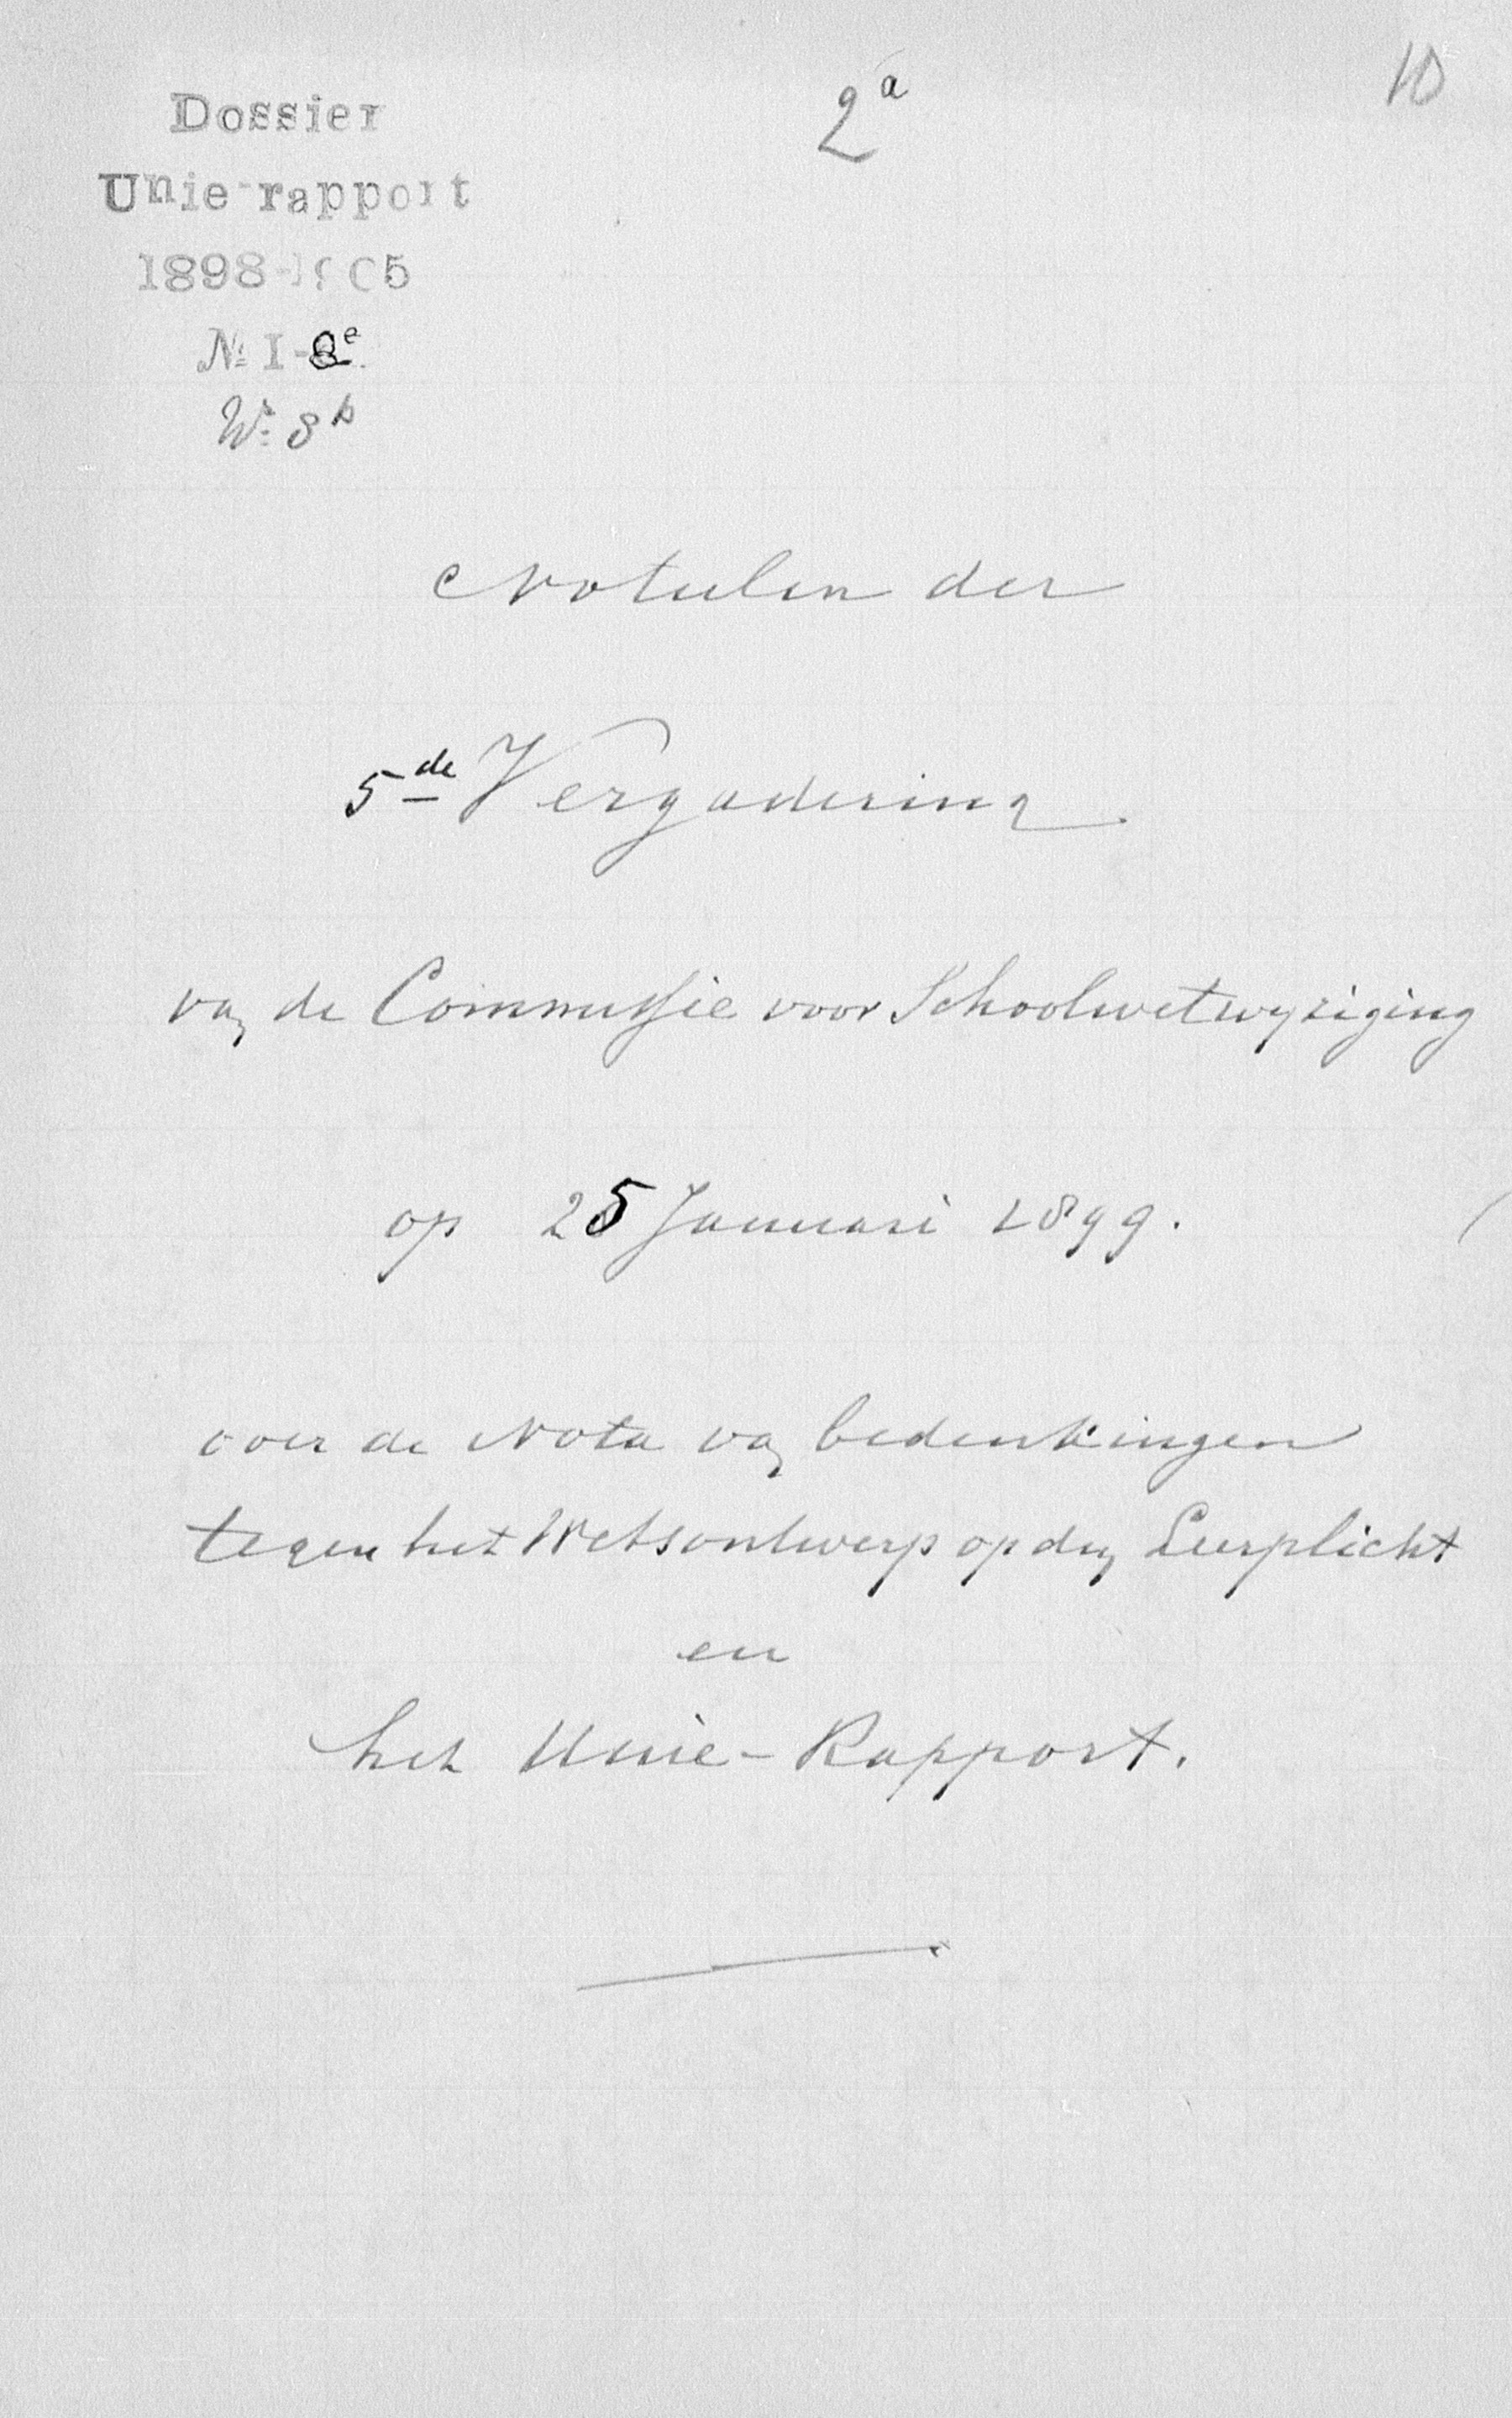 10
2a
Dossier
Unie-rapport
1898-1905
No I-8e
8b
Notulen der
5de Vergadering
van de Commissie voor Schoolwetwyziging
op 25 Januari 1899.
over de Nota van bedenkingen
tegen het Wetsontwerp op den Leerplicht
en
het Unie-Rapport.